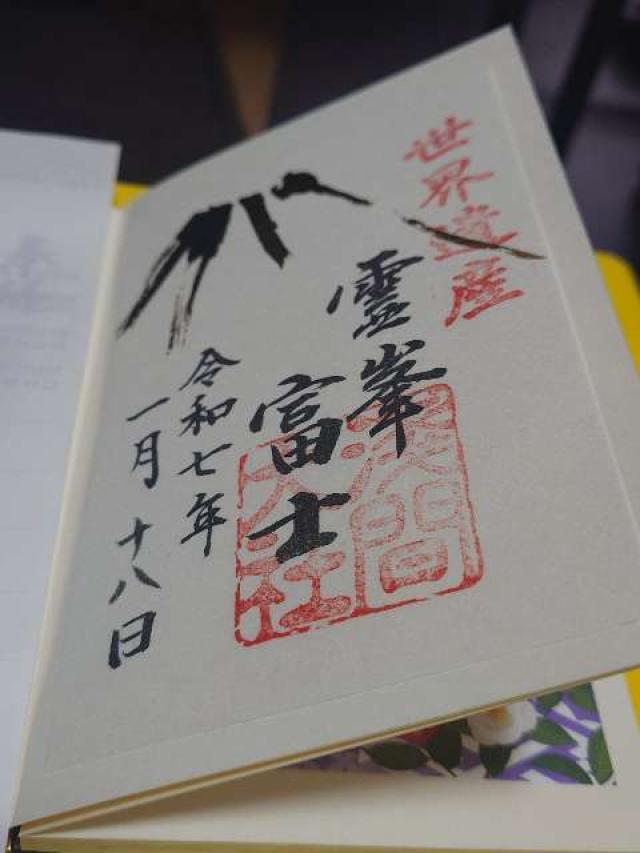 世界遺産
霊峯
富士
浅間
大社
令和七年
一月十八日